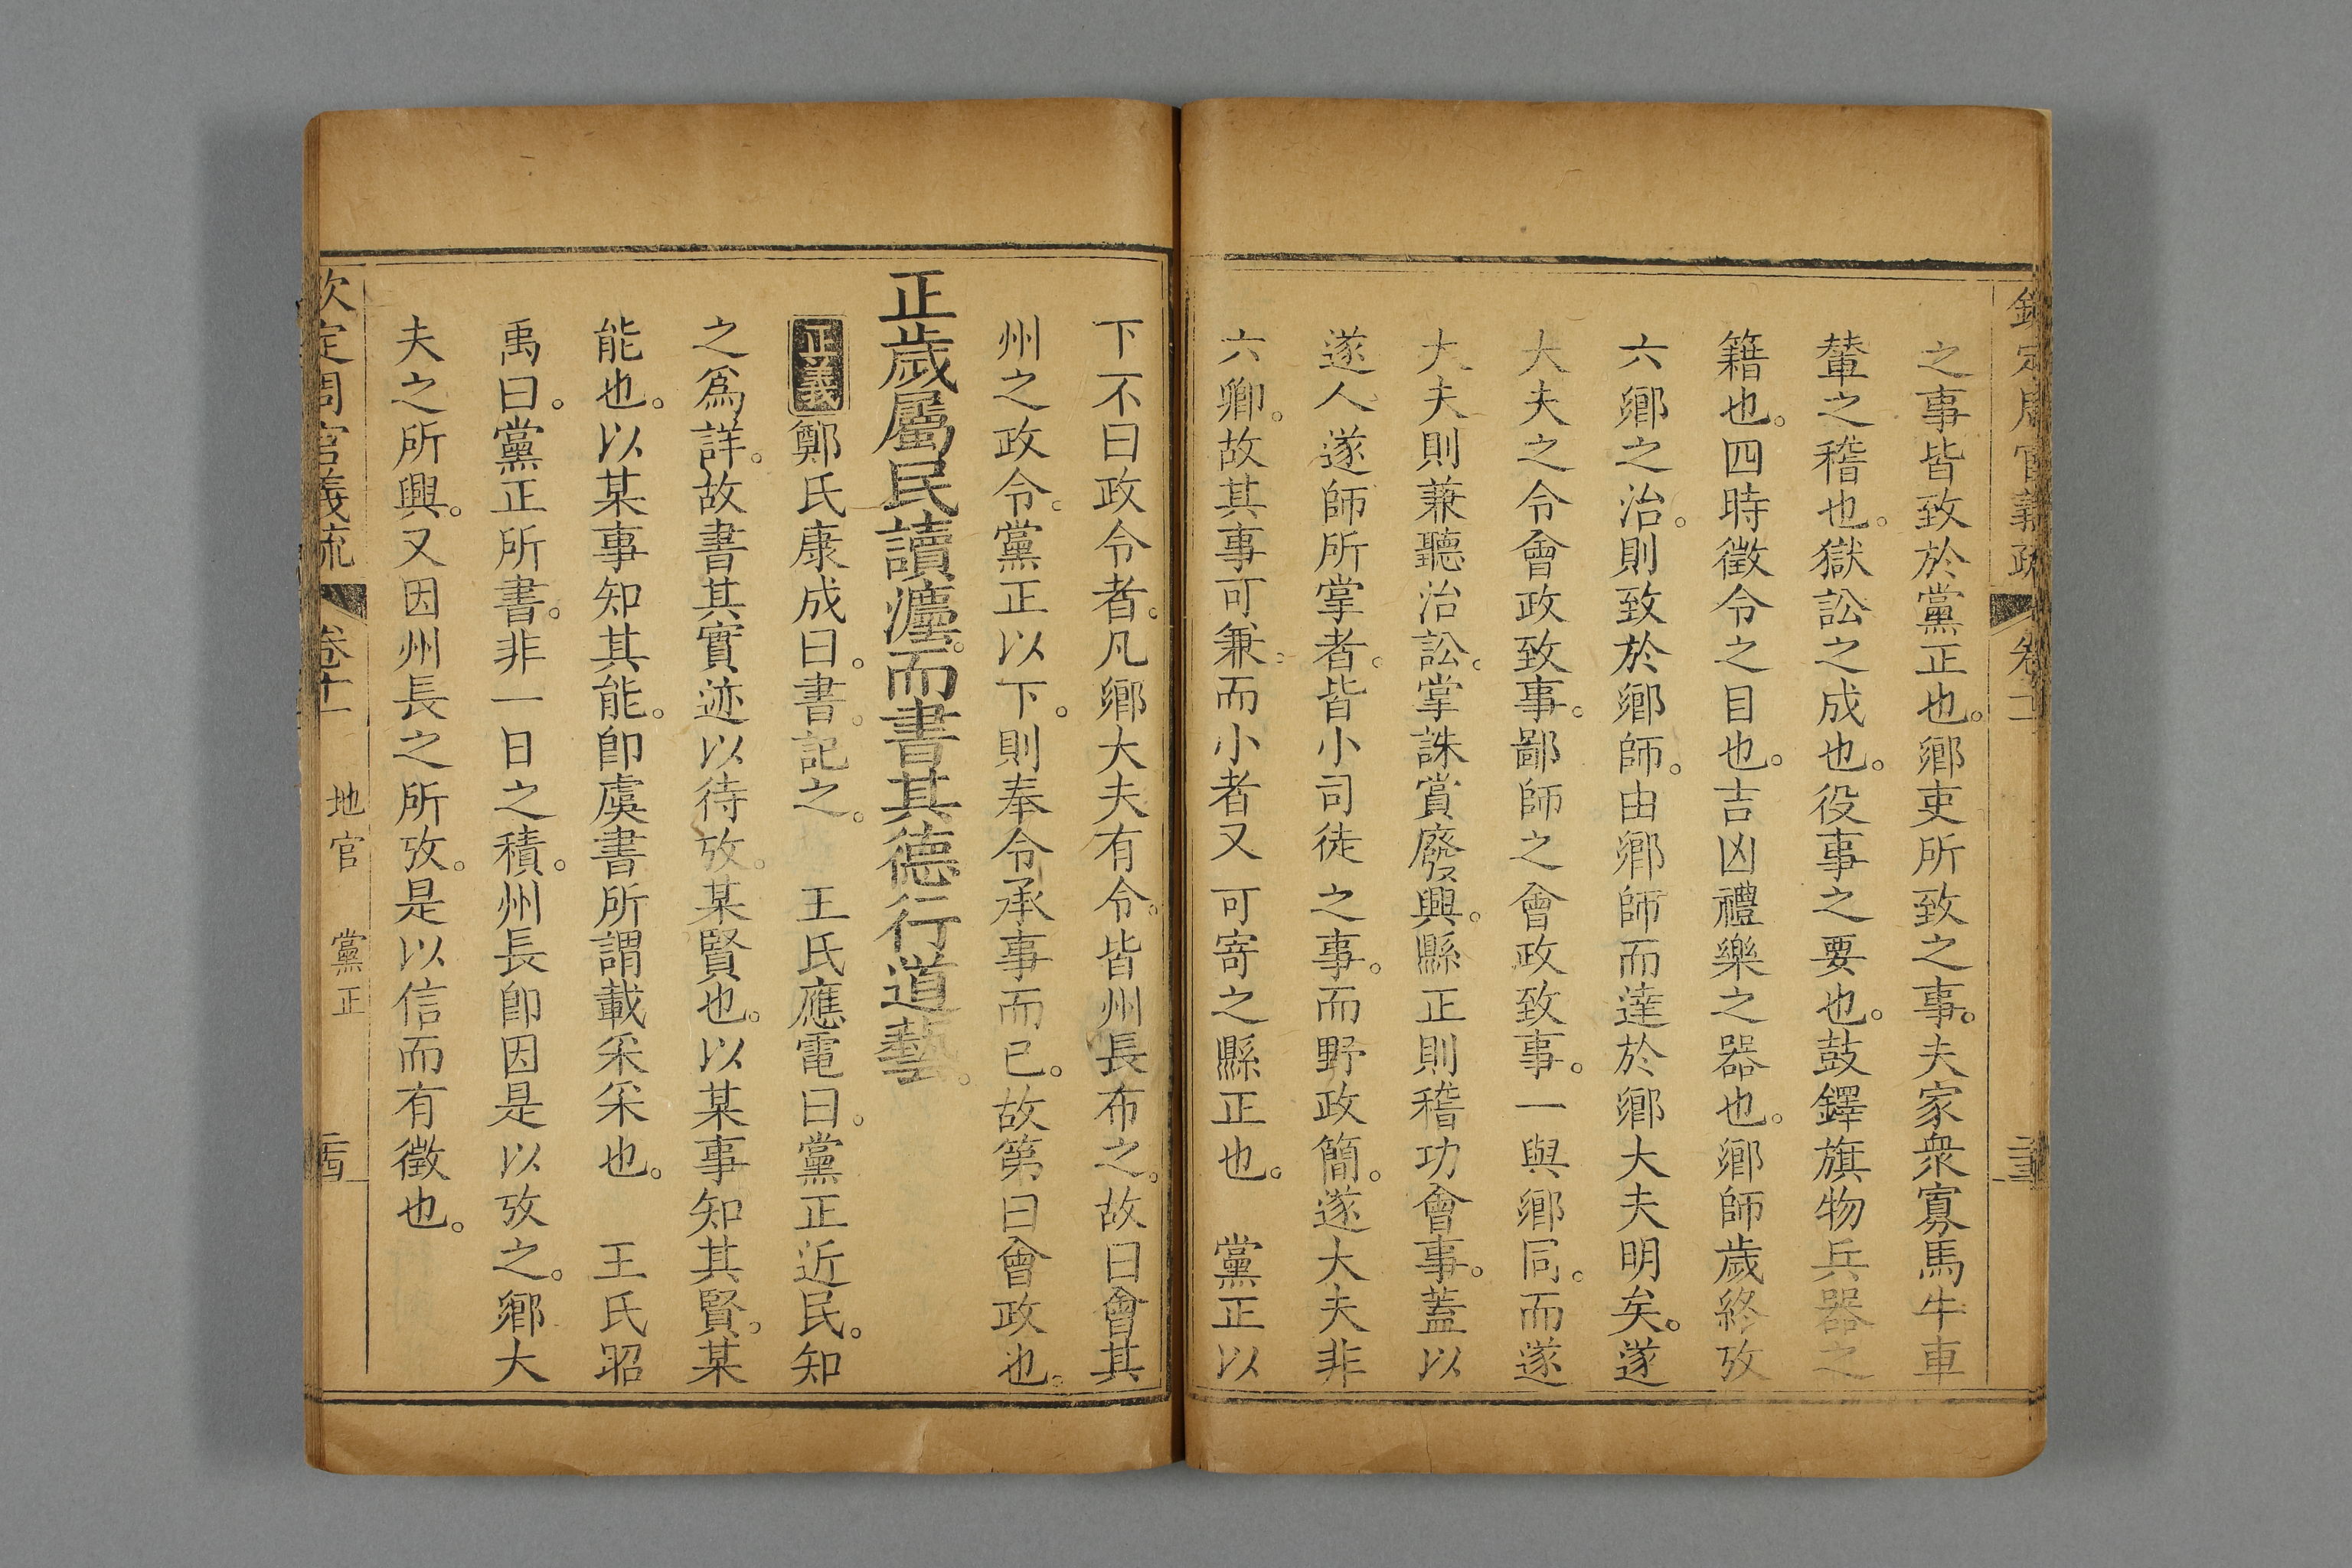 欽定周官義疏 卷十一
之事皆致於黨正也。鄉吏所致之事。夫家衆寡馬牛車
輦之稽也。獄訟之成也。役事之要也。鼓鐸旗物兵器之
籍也。四時徵令之目也。吉凶禮樂之器也。鄉師歲終攷
六鄉之治。則致於鄉師。由鄉師而達於鄉大夫明矣。遂
大夫之令會政致事。鄙師之會政致事。一與鄉同。而遂
大夫則兼聽治訟。掌誅賞廢興。縣正則稽功會事。蓋以
遂人遂師所掌者。皆小司徒之事。而野政簡。遂大夫非
六卿。故其事可兼。而小者又可寄之縣正也。 黨正以
下不曰政令者。凡鄉大夫有令。皆州長布之。故曰會其
州之政令。黨正以下。則奉令承事而已。故第曰會政也。
正歲屬民讀灋。而書其德行道藝。
正義鄭氏康成曰。書。記之。 王氏應電曰。黨正近民。知
之爲詳。故書其實迹以待攷。某賢也。以某事知其賢。某
能也。以某事知其能。卽虞書所謂載采采也。 王氏昭
禹曰。黨正所書。非一日之積。州長卽因是以攷之。鄉大
夫之所興。又因州長之所攷。是以信而有徵也。
欽定周官義疏 卷十一 地官 黨正